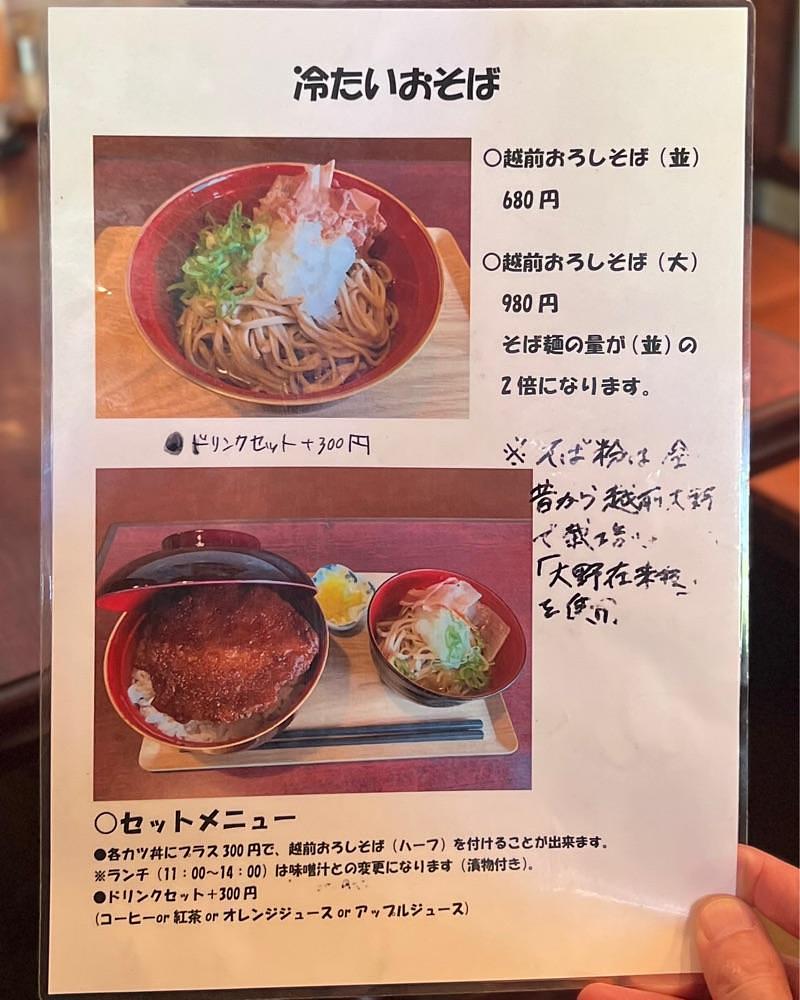 冷たいおそば
○越前おろしそば（並）
680円
○越前おろしそば（大）
980円
そば麺の量が（並）の
2倍になります。
●ドリンクセット＋300円
※そば粉は全
昔から越前大野
で栽培
「大野在来種」
を使用
○セットメニュー
●各カツ丼にプラス300円で、越前おろしそば（ハーフ）を付けることが出来ます。
※ランチ（11：00～14：00）は味噌汁との変更になります（漬物付き）。
●ドリンクセット＋300円
(コーヒーor 紅茶 or オレンジジュース or アップルジュース)